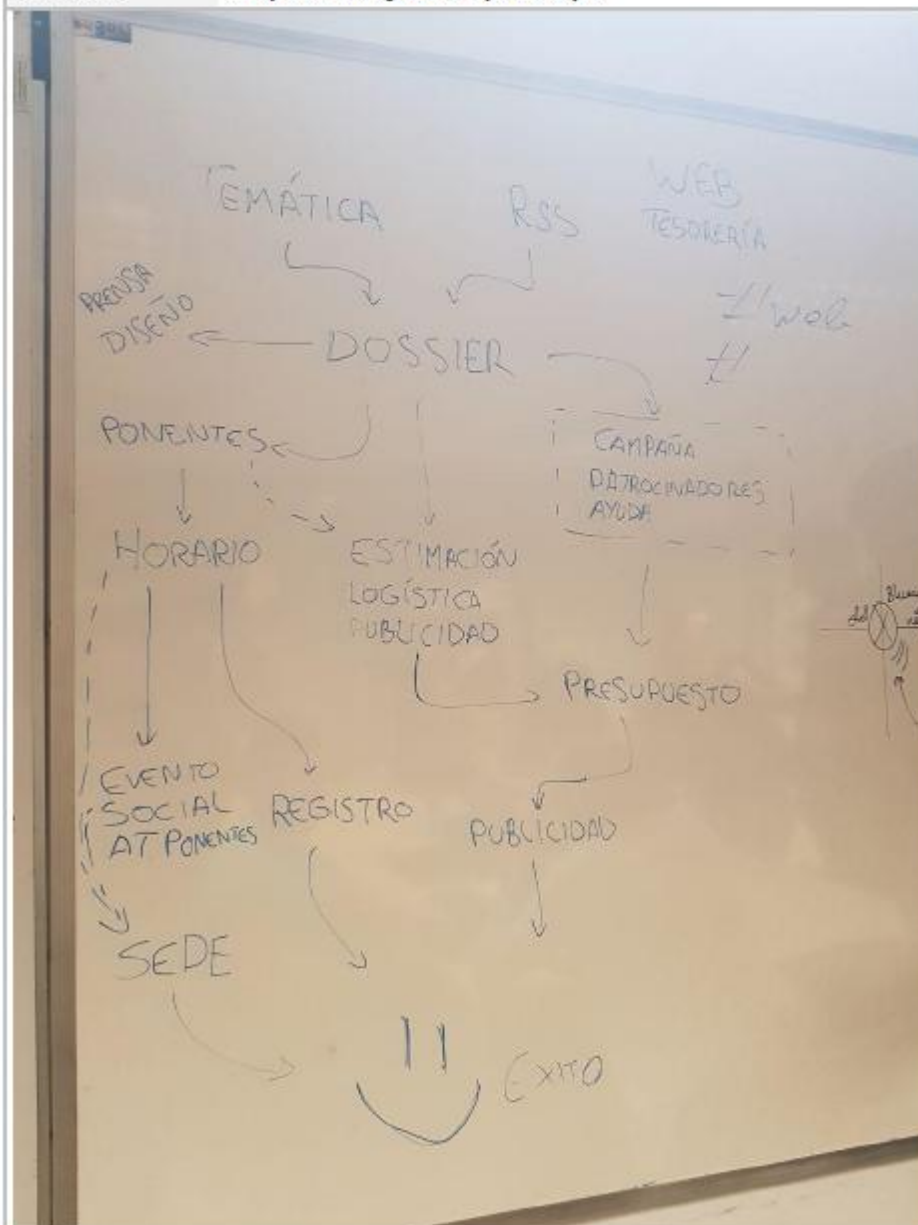 TEMÁTICA
RSS
WEB
TESORERÍA
# web
#
PRENSA
DISEÑO
DOSSIER
PONENTES
CAMPAÑA
PATROCINADORES
AYUDA
HORARIO
ESTIMACIÓN
LOGÍSTICA
PUBLICIDAD
PRESUPUESTO
EVENTO
SOCIAL
AT PONENTES
REGISTRO
PUBLICIDAD
SEDE
EXITO